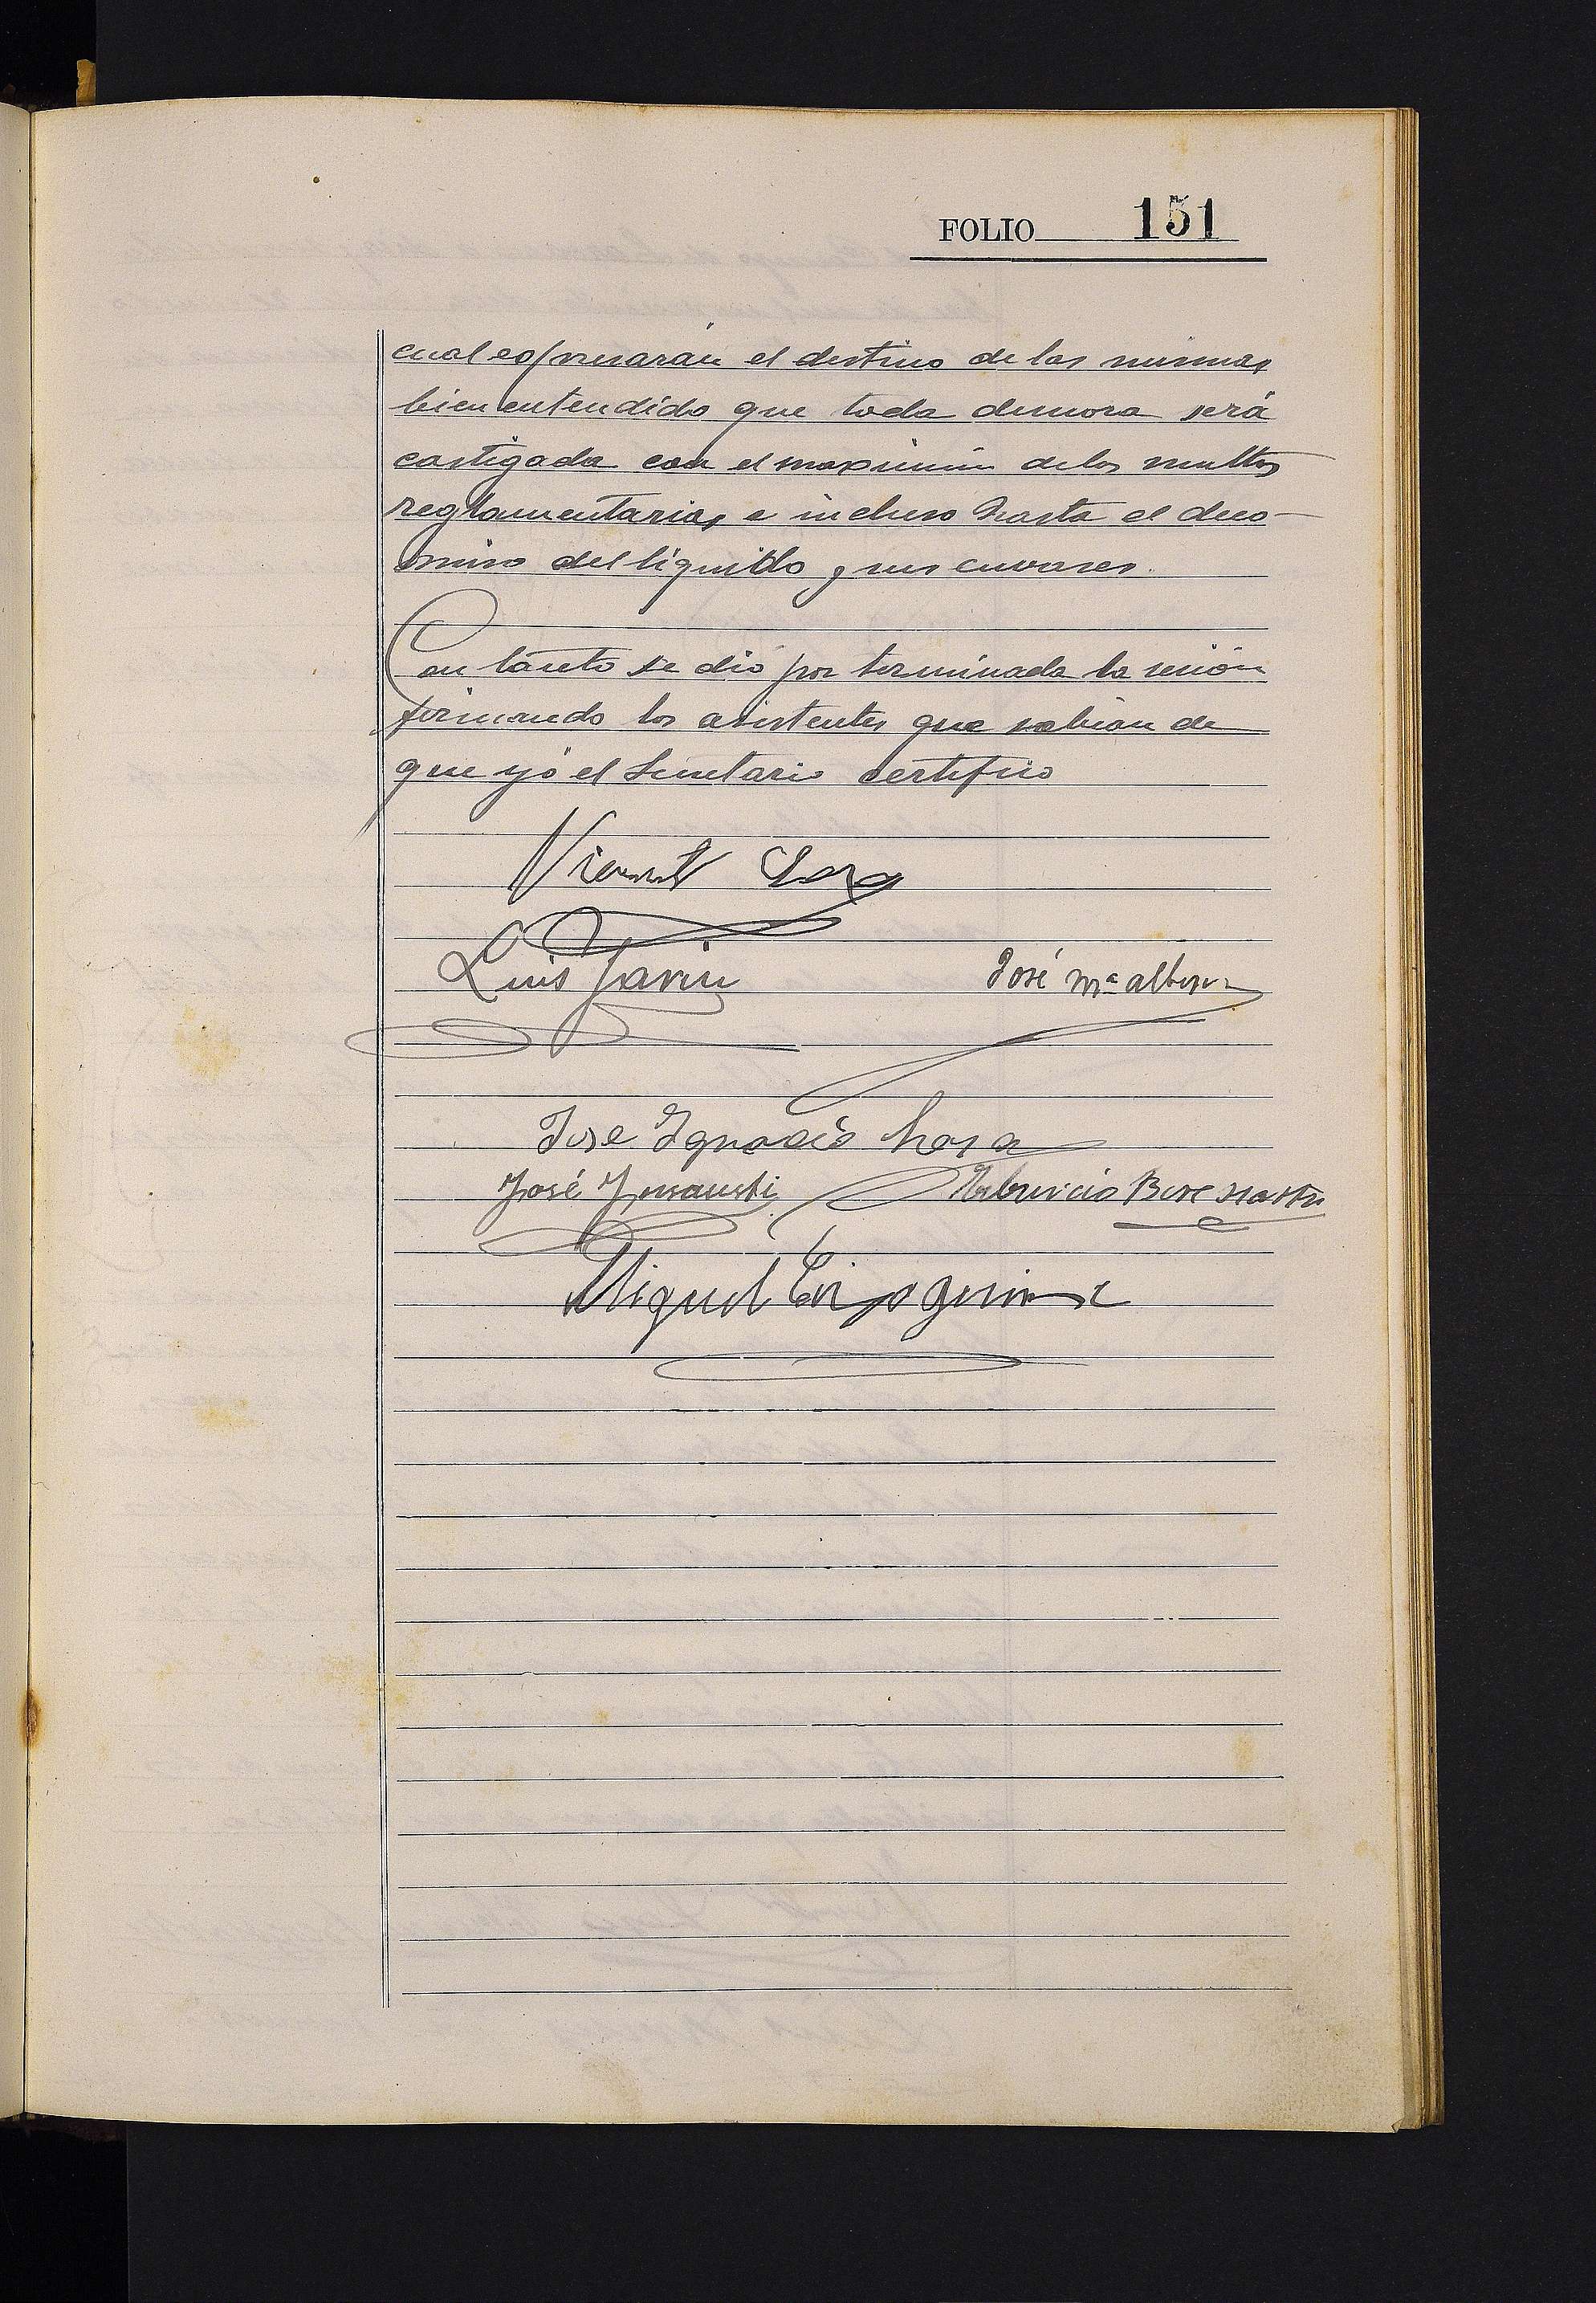 FOLIO 151
cual espresarán el destino de las mismas
bien entendido que toda demora será
castigada con el maximun de las multas
reglamentarias e incluso hasta el deco-
miso del líquido y sus envases.
Con tanto se dió por terminada la sesión
firmando los asistentes que sabían de
que yó el Secretario certifico
Vicente
Luis José Mª
Jose Ignacio
José
Miguel